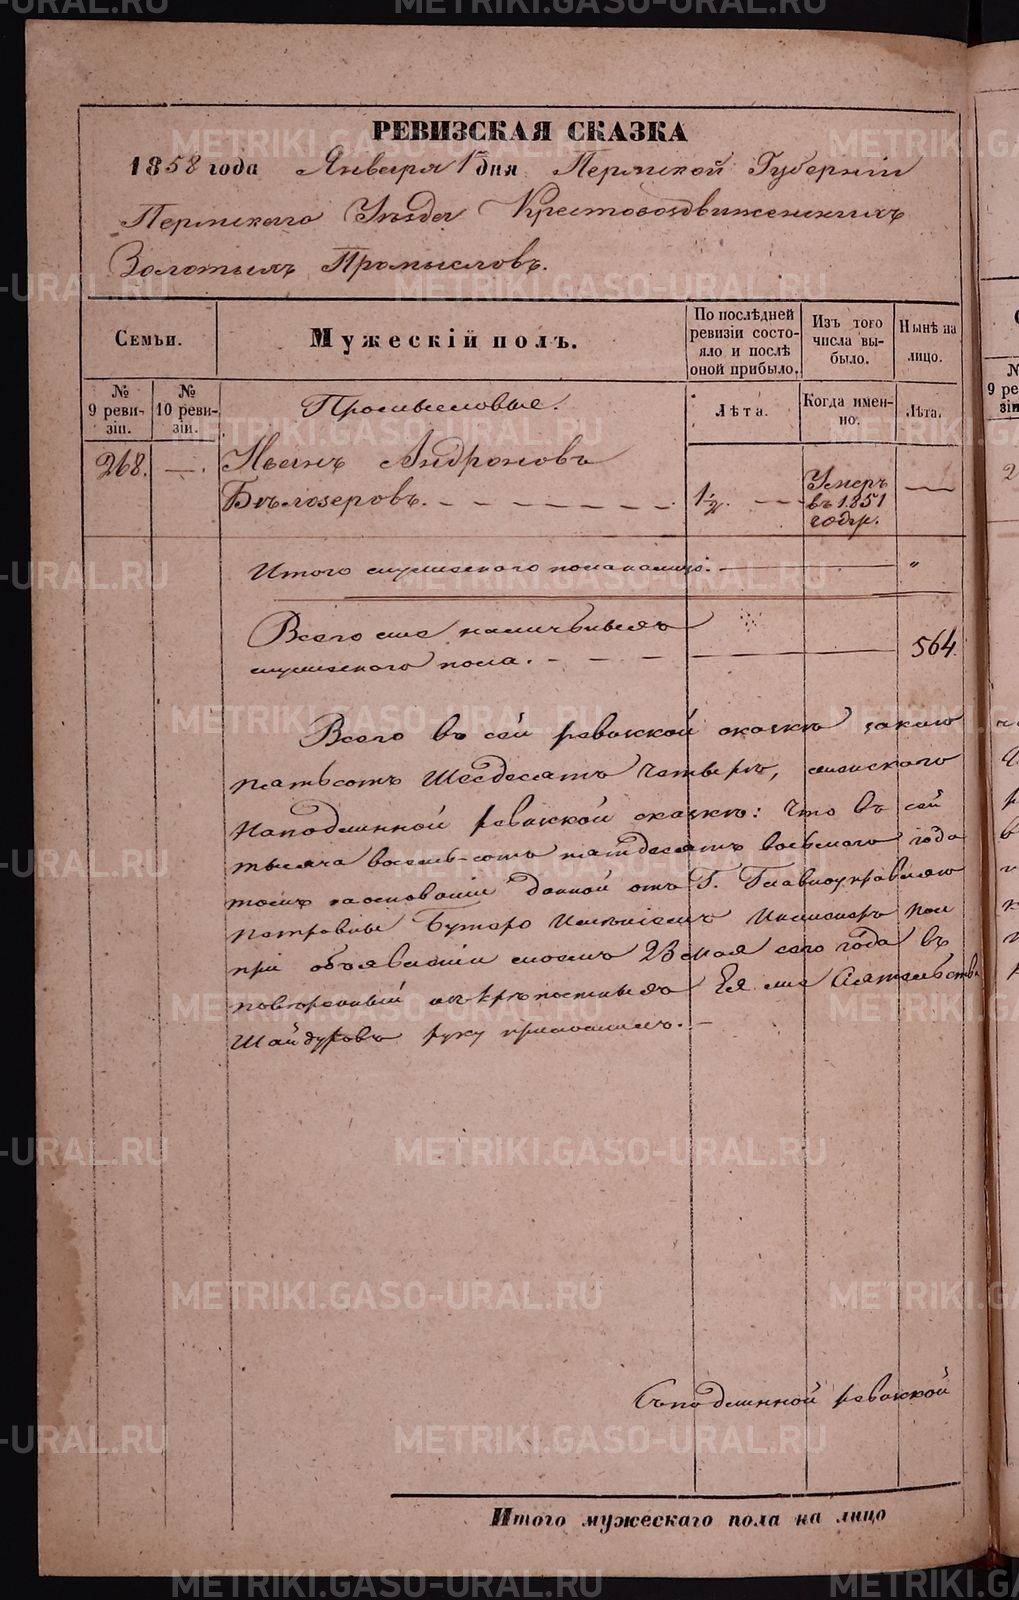 РЕВИЗСКАЯ СКАЗКА
1858 года Января 1 дня Пермской Губерніи
Пермскаго Уѣзда Крестовоздвиженскихъ
Золотыхъ Промысловъ.
Семьи.
Мужескій полъ.
По послѣдней ревизіи состояло и послѣ оной прибыло.
Изъ того числа выбыло.
Нынѣ на лицо.
№ 9 ревизіи.
№ 10 ревизіи.
Промысловые.
Лѣта.
Когда именно.
Лѣта.
268. —. Иванъ Андроновъ
Бѣлозеровъ. 1/2. Умеръ въ 1851 годѵ.
Итого мужескаго пола на лицо. "
Всего же наличныхъ
мужескаго пола. 564.
Всего въ сей ревизской сказкѣ
пятьсотъ шесдесятъ четыре, женскаго
Наподлинной ревизской сказкѣ: Что въ сей
тысяча восемь-сотъ пятдесятъ восьмаго года
томъ на основаніи данной отъ Г. Главноуправляю
петровны Бутеро Имѣніемъ
при объявленіи моемъ 23 мая сего года въ
повѣренный изъ крѣпостныхъ Ея же Сіятельства
Шайдуровъ руку приложилъ. —
Съподлинной ревизской
Итого мужескаго пола на лицо
METRIKI.GASO-URAL.RU